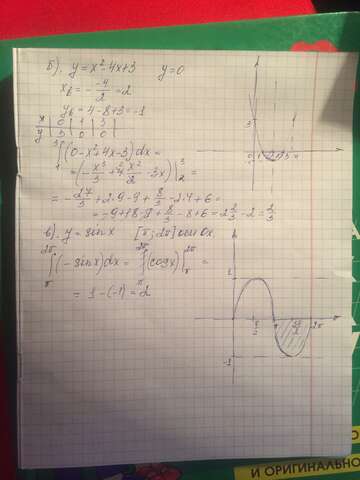 б). y = x² - 4x + 3    y = 0
xв = - -4/2 = 2
yв = 4 - 8 + 3 = -1
x | 0 | 1 | 3 |
y | 3 | 0 | 0 |
∫₁³ (0 - x² + 4x - 3) dx =
= (- x³/3 + 4 x²/2 - 3x) |₂³ =
= - 27/3 + 2·9 - 9 + 8/3 - 2·4 + 6 =
= -9 + 18 - 9 + 8/3 - 8 + 6 = 2 2/3 - 2 = 2/3
в). y = sin x    [π; 2π] оси Ox
∫ (- sin x) dx = (cos x) |  =
= 1 - (-1) = 2
1
-1
π/2
π
3π/2
2π
И ОРИГИНАЛЬНО